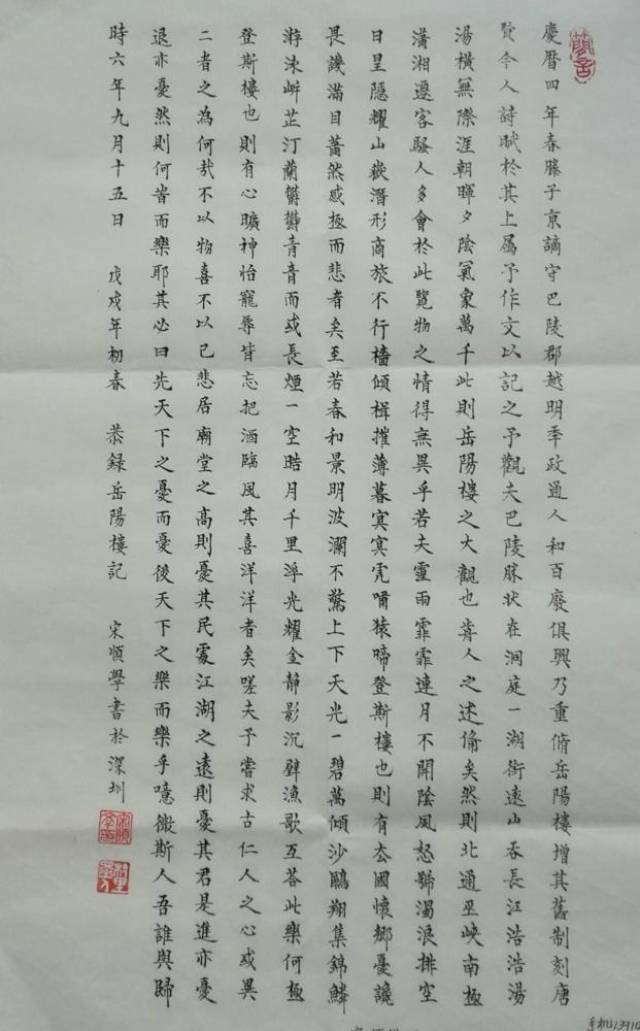 慶曆四年春滕子京謫守巴陵郡越明年政通人和百廢俱興乃重脩岳陽樓增其舊制刻唐
賢今人詩賦於其上屬予作文以記之予觀夫巴陵勝狀在洞庭一湖銜遠山吞長江浩浩湯
湯橫無際涯朝暉夕陰氣象萬千此則岳陽樓之大觀也前人之述備矣然則北通巫峽南極
瀟湘遷客騷人多會於此覽物之情得無異乎若夫霪雨霏霏連月不開陰風怒號濁浪排空
日星隱耀山嶽潛形商旅不行檣傾楫摧薄暮冥冥虎嘯猿啼登斯樓也則有去國懷鄉憂讒
畏譏滿目蕭然感極而悲者矣至若春和景明波瀾不驚上下天光一碧萬頃沙鷗翔集錦鱗
游泳岸芷汀蘭鬱鬱青青而或長煙一空皓月千里浮光耀金靜影沉璧漁歌互荅此樂何極
登斯樓也則有心曠神怡寵辱皆忘把酒臨風其喜洋洋者矣嗟夫予嘗求古仁人之心或異
二者之為何哉不以物喜不以己悲居廟堂之高則憂其民處江湖之遠則憂其君是進亦憂
退亦憂然則何時而樂耶其必曰先天下之憂而憂後天下之樂而樂乎噫微斯人吾誰與歸
時六年九月十五日 戊戌年初春 恭錄岳陽樓記 宋順學書於深圳